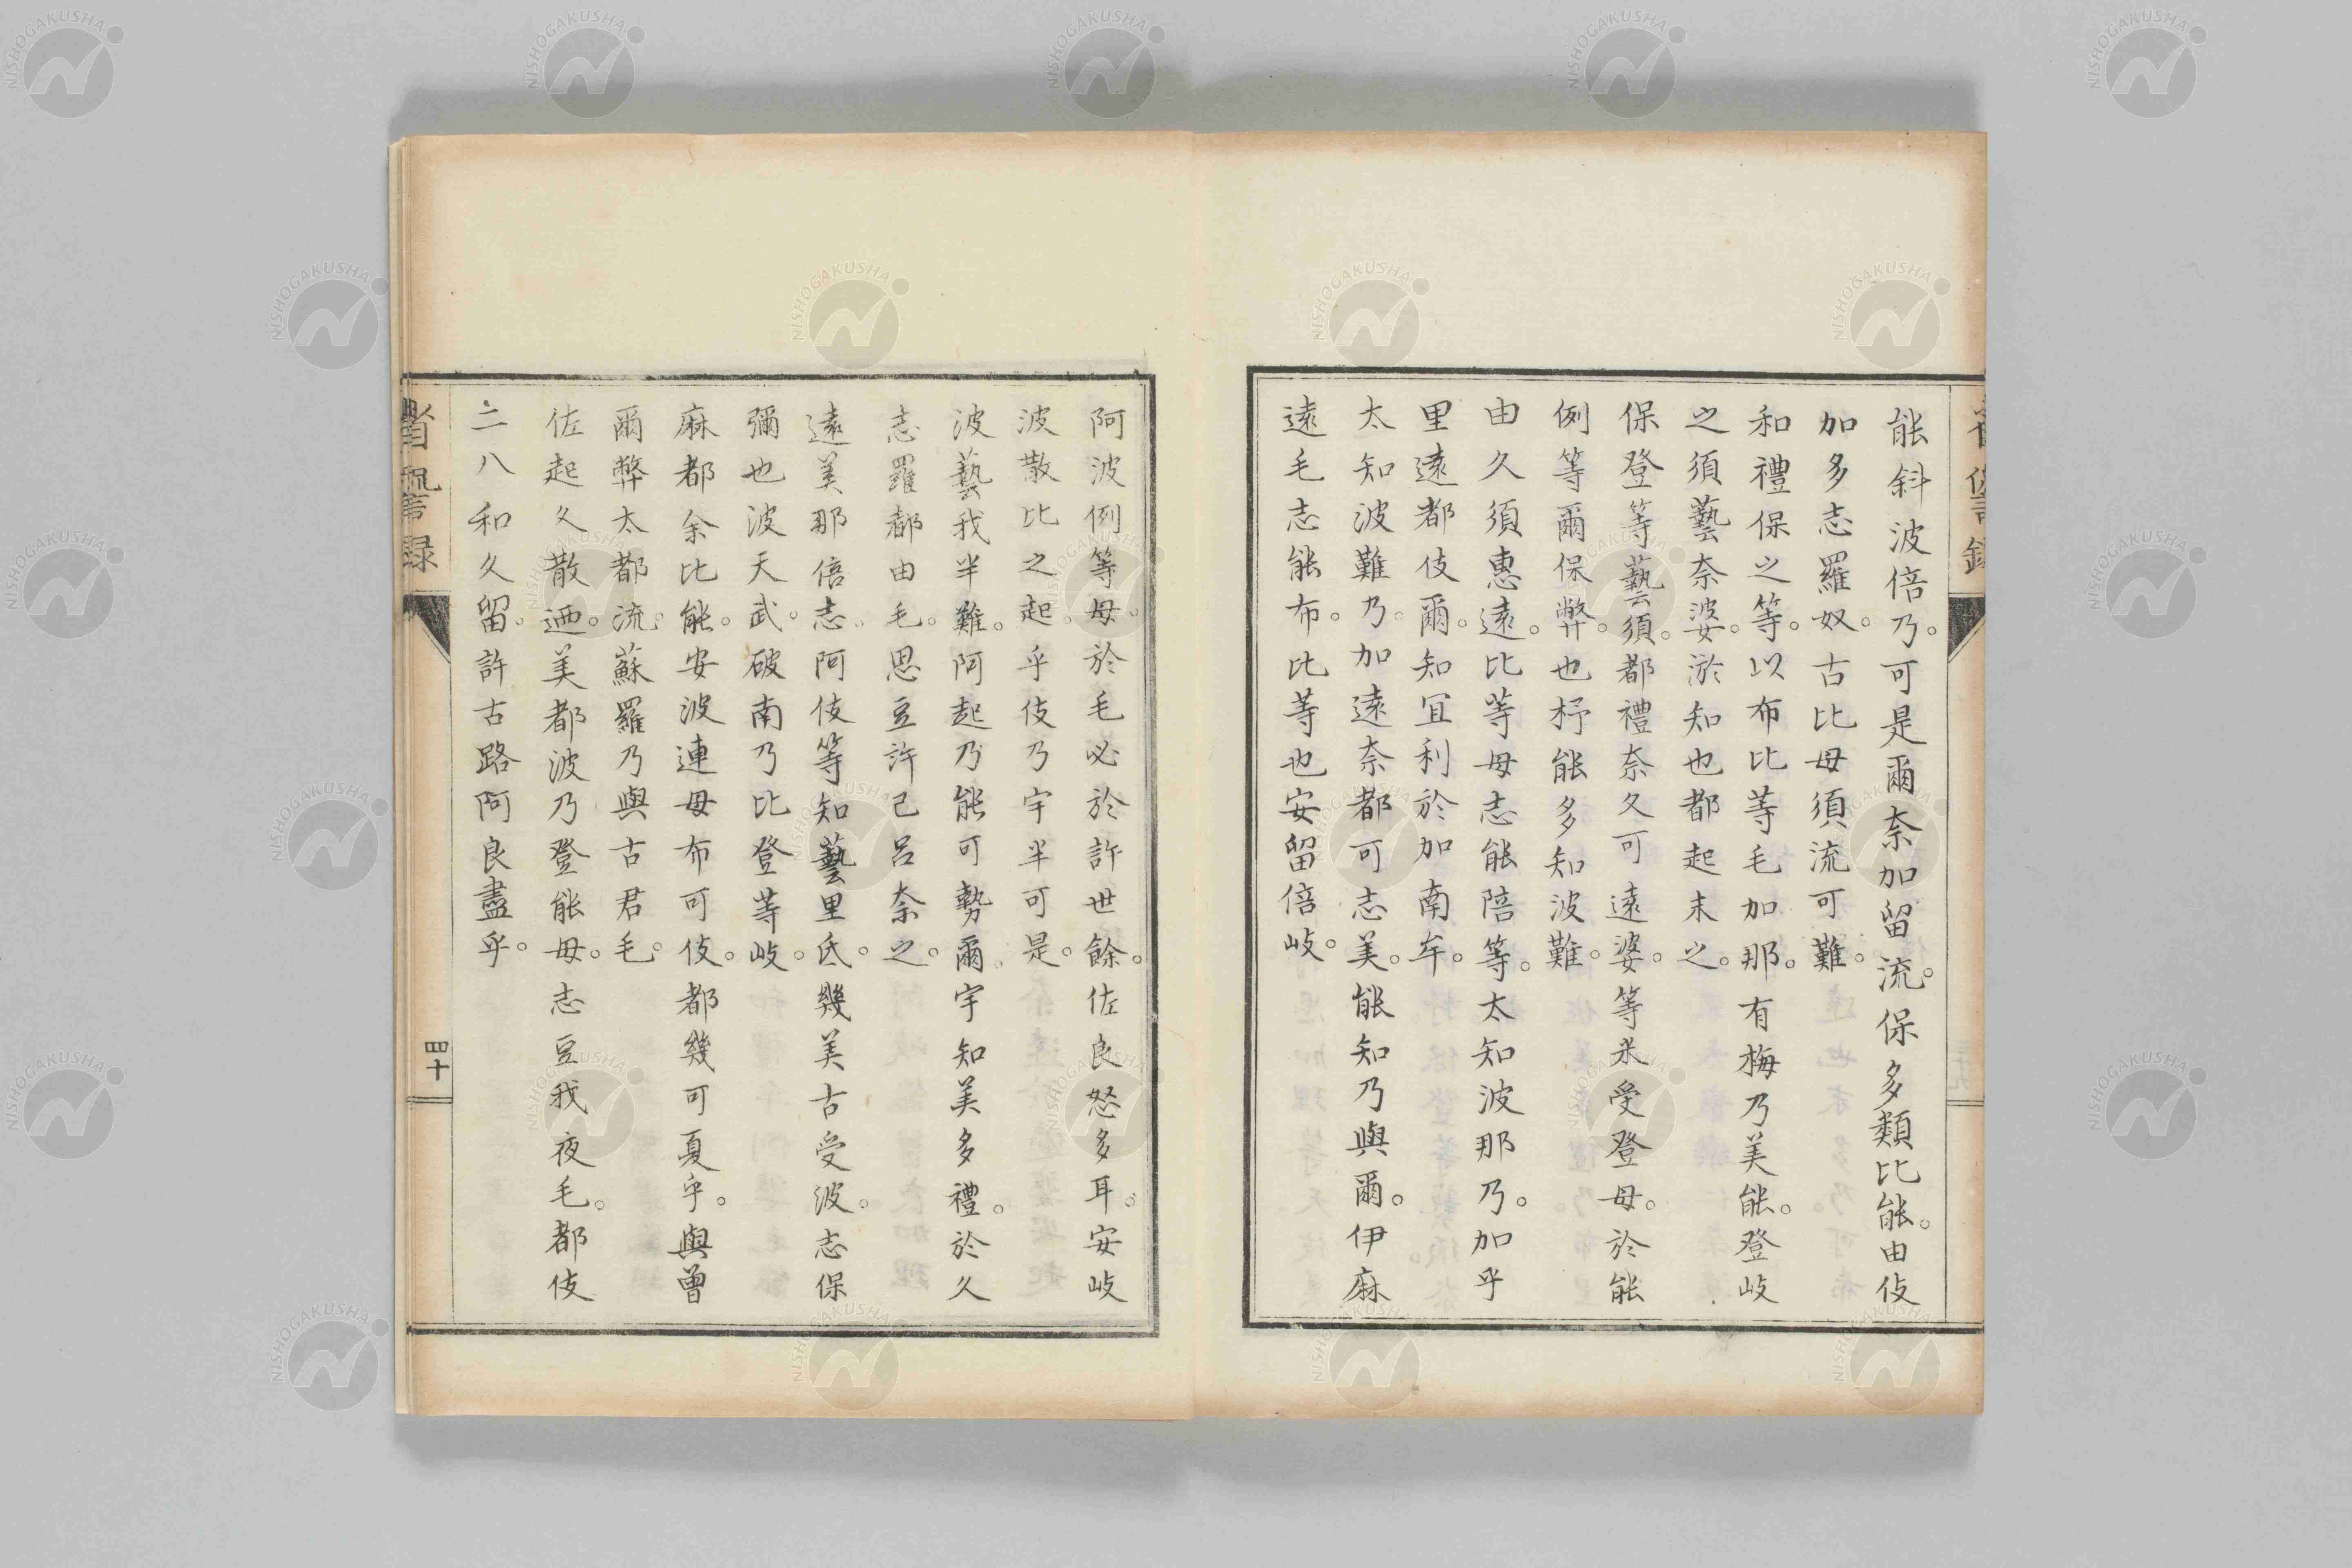 能斜波倍乃。可是爾奈加留流。保多類比能。由伎
加多志羅奴。古比毋須流可難。
和禮保之等。以布比等毛加那。有梅乃美能。登岐
之須藝奈婆。淤知也都起末之。
保登等藝須。都禮奈久可遠婆。等米受登毋。於能
例等爾保弊。也杼能多知波難。
由久須惠遠。比等毋志能陪等。太知波那乃。加乎
里遠都伎爾。知冝利於加南牟。
太知波難乃。加遠奈都可志美。能知乃與爾。伊麻
遠毛志能布。比等也安留倍岐。
阿波例等毋。於毛必於許世餘。佐良怒多耳。安岐
波散比之起。乎伎乃宇半可是。
波藝我半難。阿起乃能可勢爾。宇知美多禮。於久
志羅都由毛。思豆許己呂奈之。
遠美那倍志。阿伎等知藝里氐。幾美古受波。志保
彌也波天武。破南乃比登等岐。
麻都余比能。安波連毋布可伎。都幾可夏乎。與曽
爾弊太都流。蘇羅乃與古君毛。
佐起久散廼。美都波乃登能毋。志豆我夜毛。都伎
二八和久留。許古路阿良盡乎。
省諐録
四十
NISHOGAKUSHA